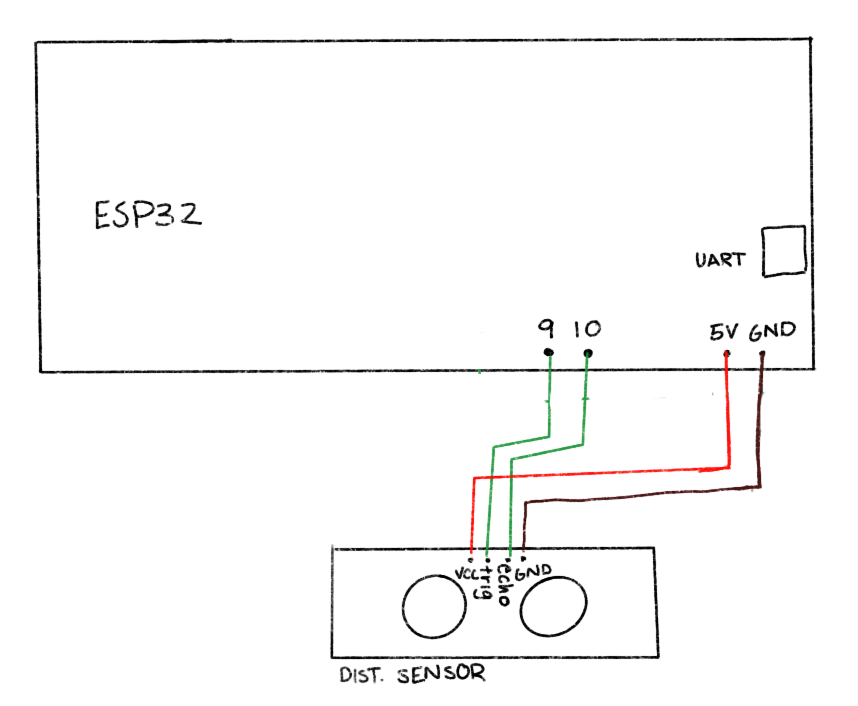 ESP32
UART
9 10
5V GND
VCC trig echo GND
DIST. SENSOR